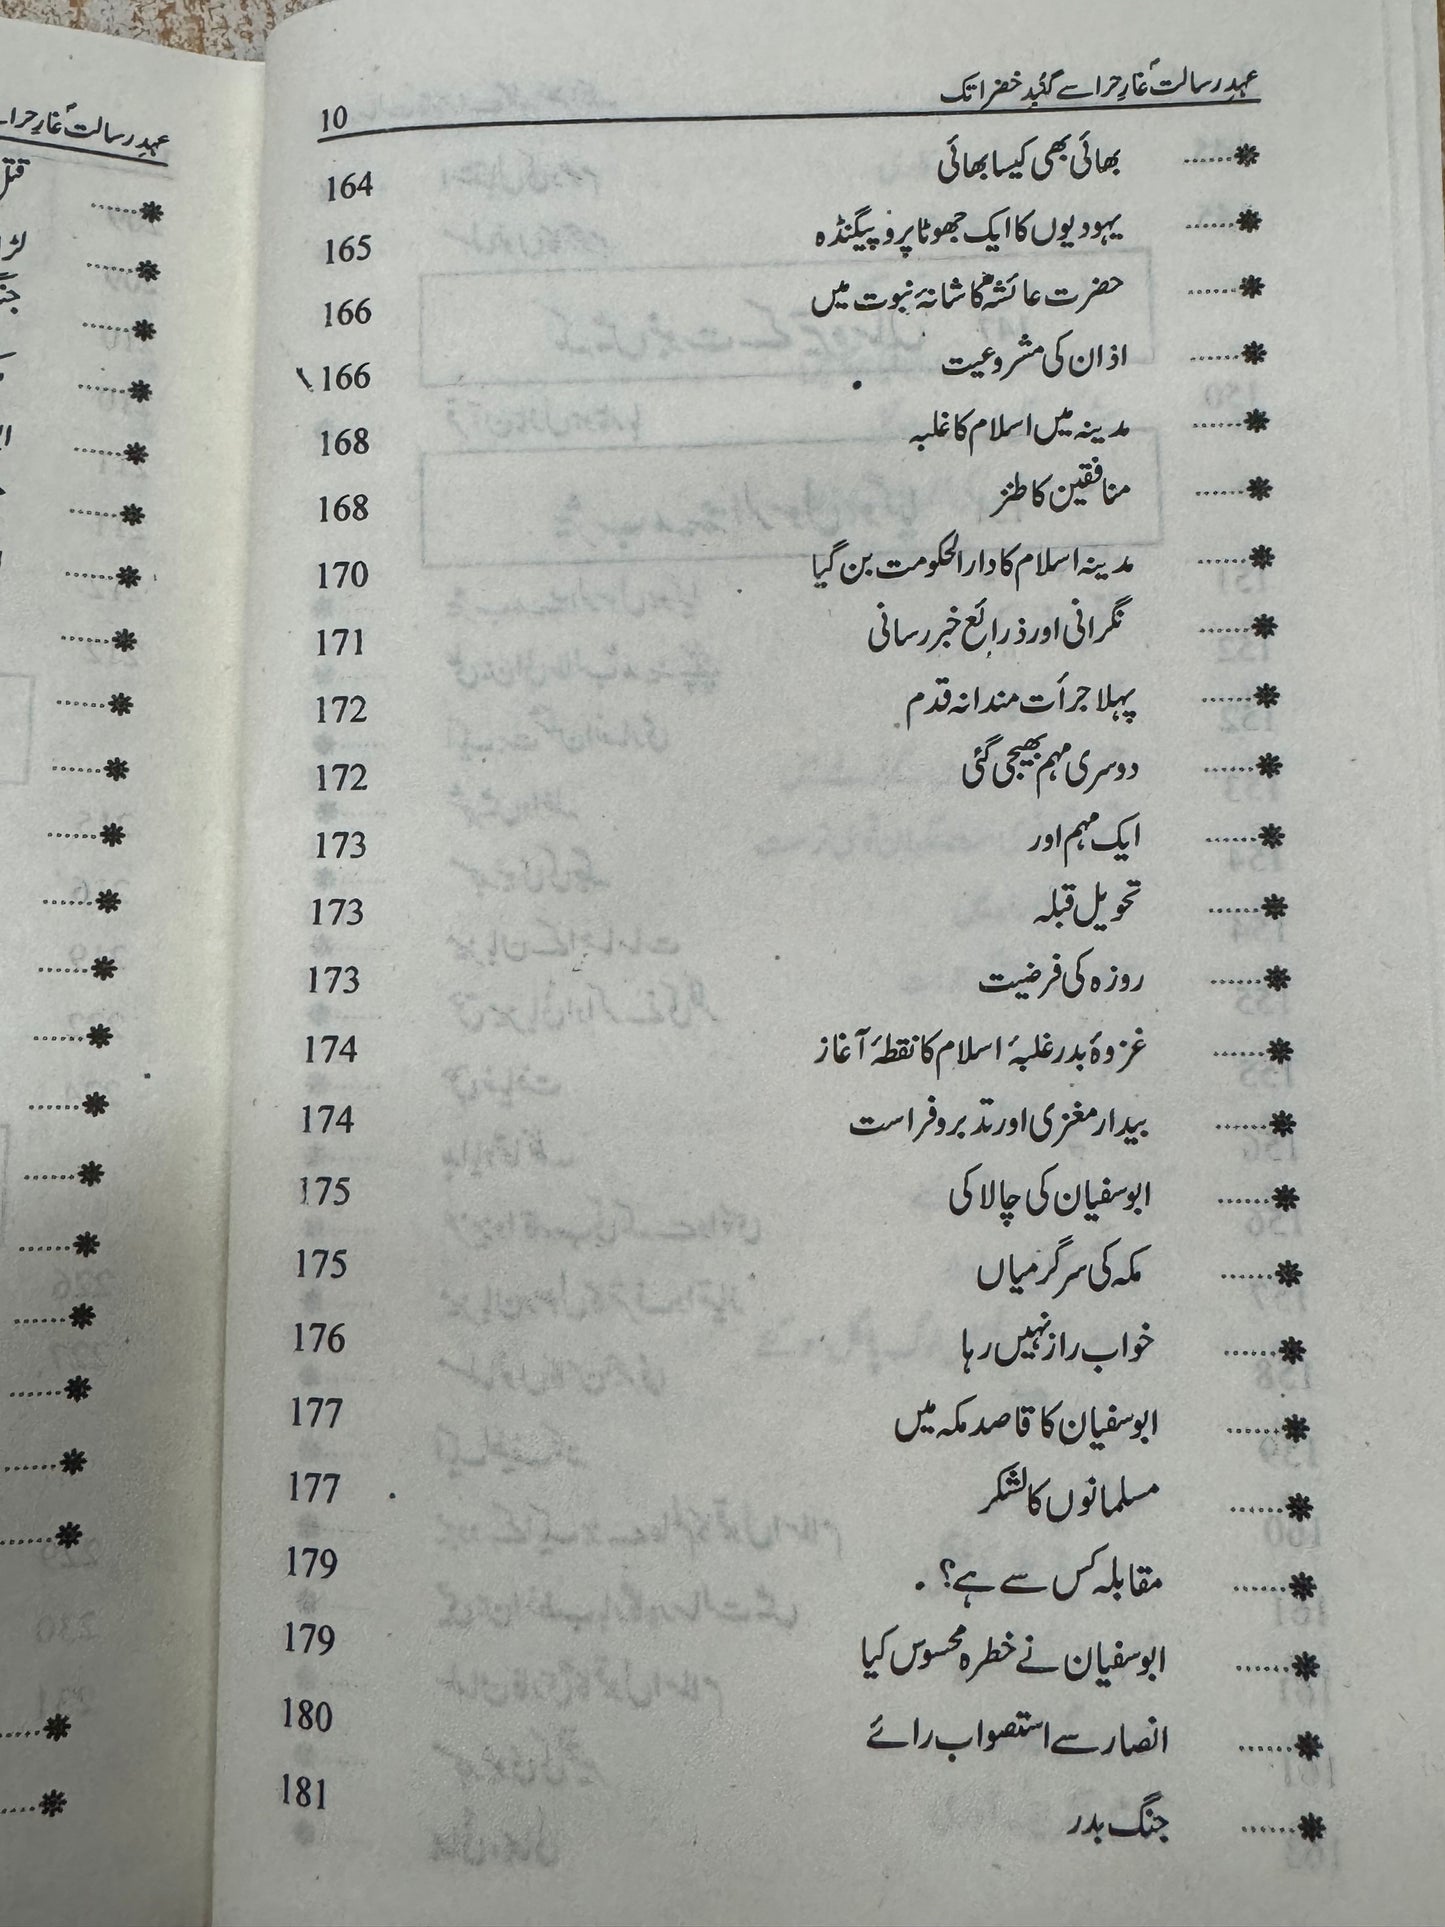 عہدِ رسالتؐ غارِ حرا سے گنبدِ خضرا تک 10
بھائی بھی کیسا بھائی 164
یہودیوں کا ایک جھوٹا پروپیگنڈہ 165
حضرت عائشہؓ کاشانۂ نبوت میں 166
اذان کی مشروعیت 166
مدینہ میں اسلام کا غلبہ 168
منافقین کا طنز 168
مدینہ اسلام کا دارالحکومت بن گیا 170
نگرانی اور ذرائع خبر رسانی 171
پہلا جرأت مندانہ قدم 172
دوسری مہم بھیجی گئی 172
ایک مہم اور 173
تحویل قبلہ 173
روزہ کی فرضیت 173
غزوۂ بدر غلبۂ اسلام کا نقطۂ آغاز 174
بیدار مغزی اور تدبر و فراست 174
ابوسفیان کی چالاکی 175
مکہ کی سرگرمیاں 175
خواب راز نہیں رہا 176
ابوسفیان کا قاصد مکہ میں 177
مسلمانوں کا لشکر 177
مقابلہ کس سے ہے؟ 179
ابوسفیان نے خطرہ محسوس کیا 179
انصار سے استصواب رائے 180
جنگ بدر 181
عہدِ رسالتؐ غارِ حرا سے